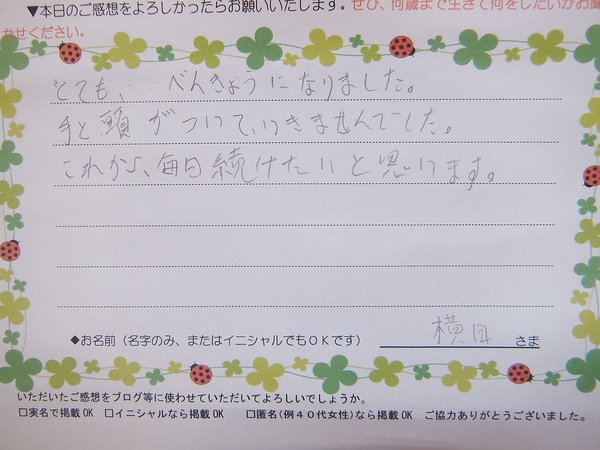 ▼本日のご感想をよろしかったらお願いいたします。ぜひ、何歳まで生きて何をしたいかお聞
かせください。
とても、べんきょうになりました。
手と頭がついていきませんでした。
これから、毎日続けたいと思います。
◆お名前（名字のみ、またはイニシャルでもＯＫです） 横田 さま
いただいたご感想をブログ等に使わせていただいてよろしいでしょうか。
□実名で掲載OK □イニシャルなら掲載OK □匿名(例４０代女性)なら掲載OK ご協力ありがとうございました。